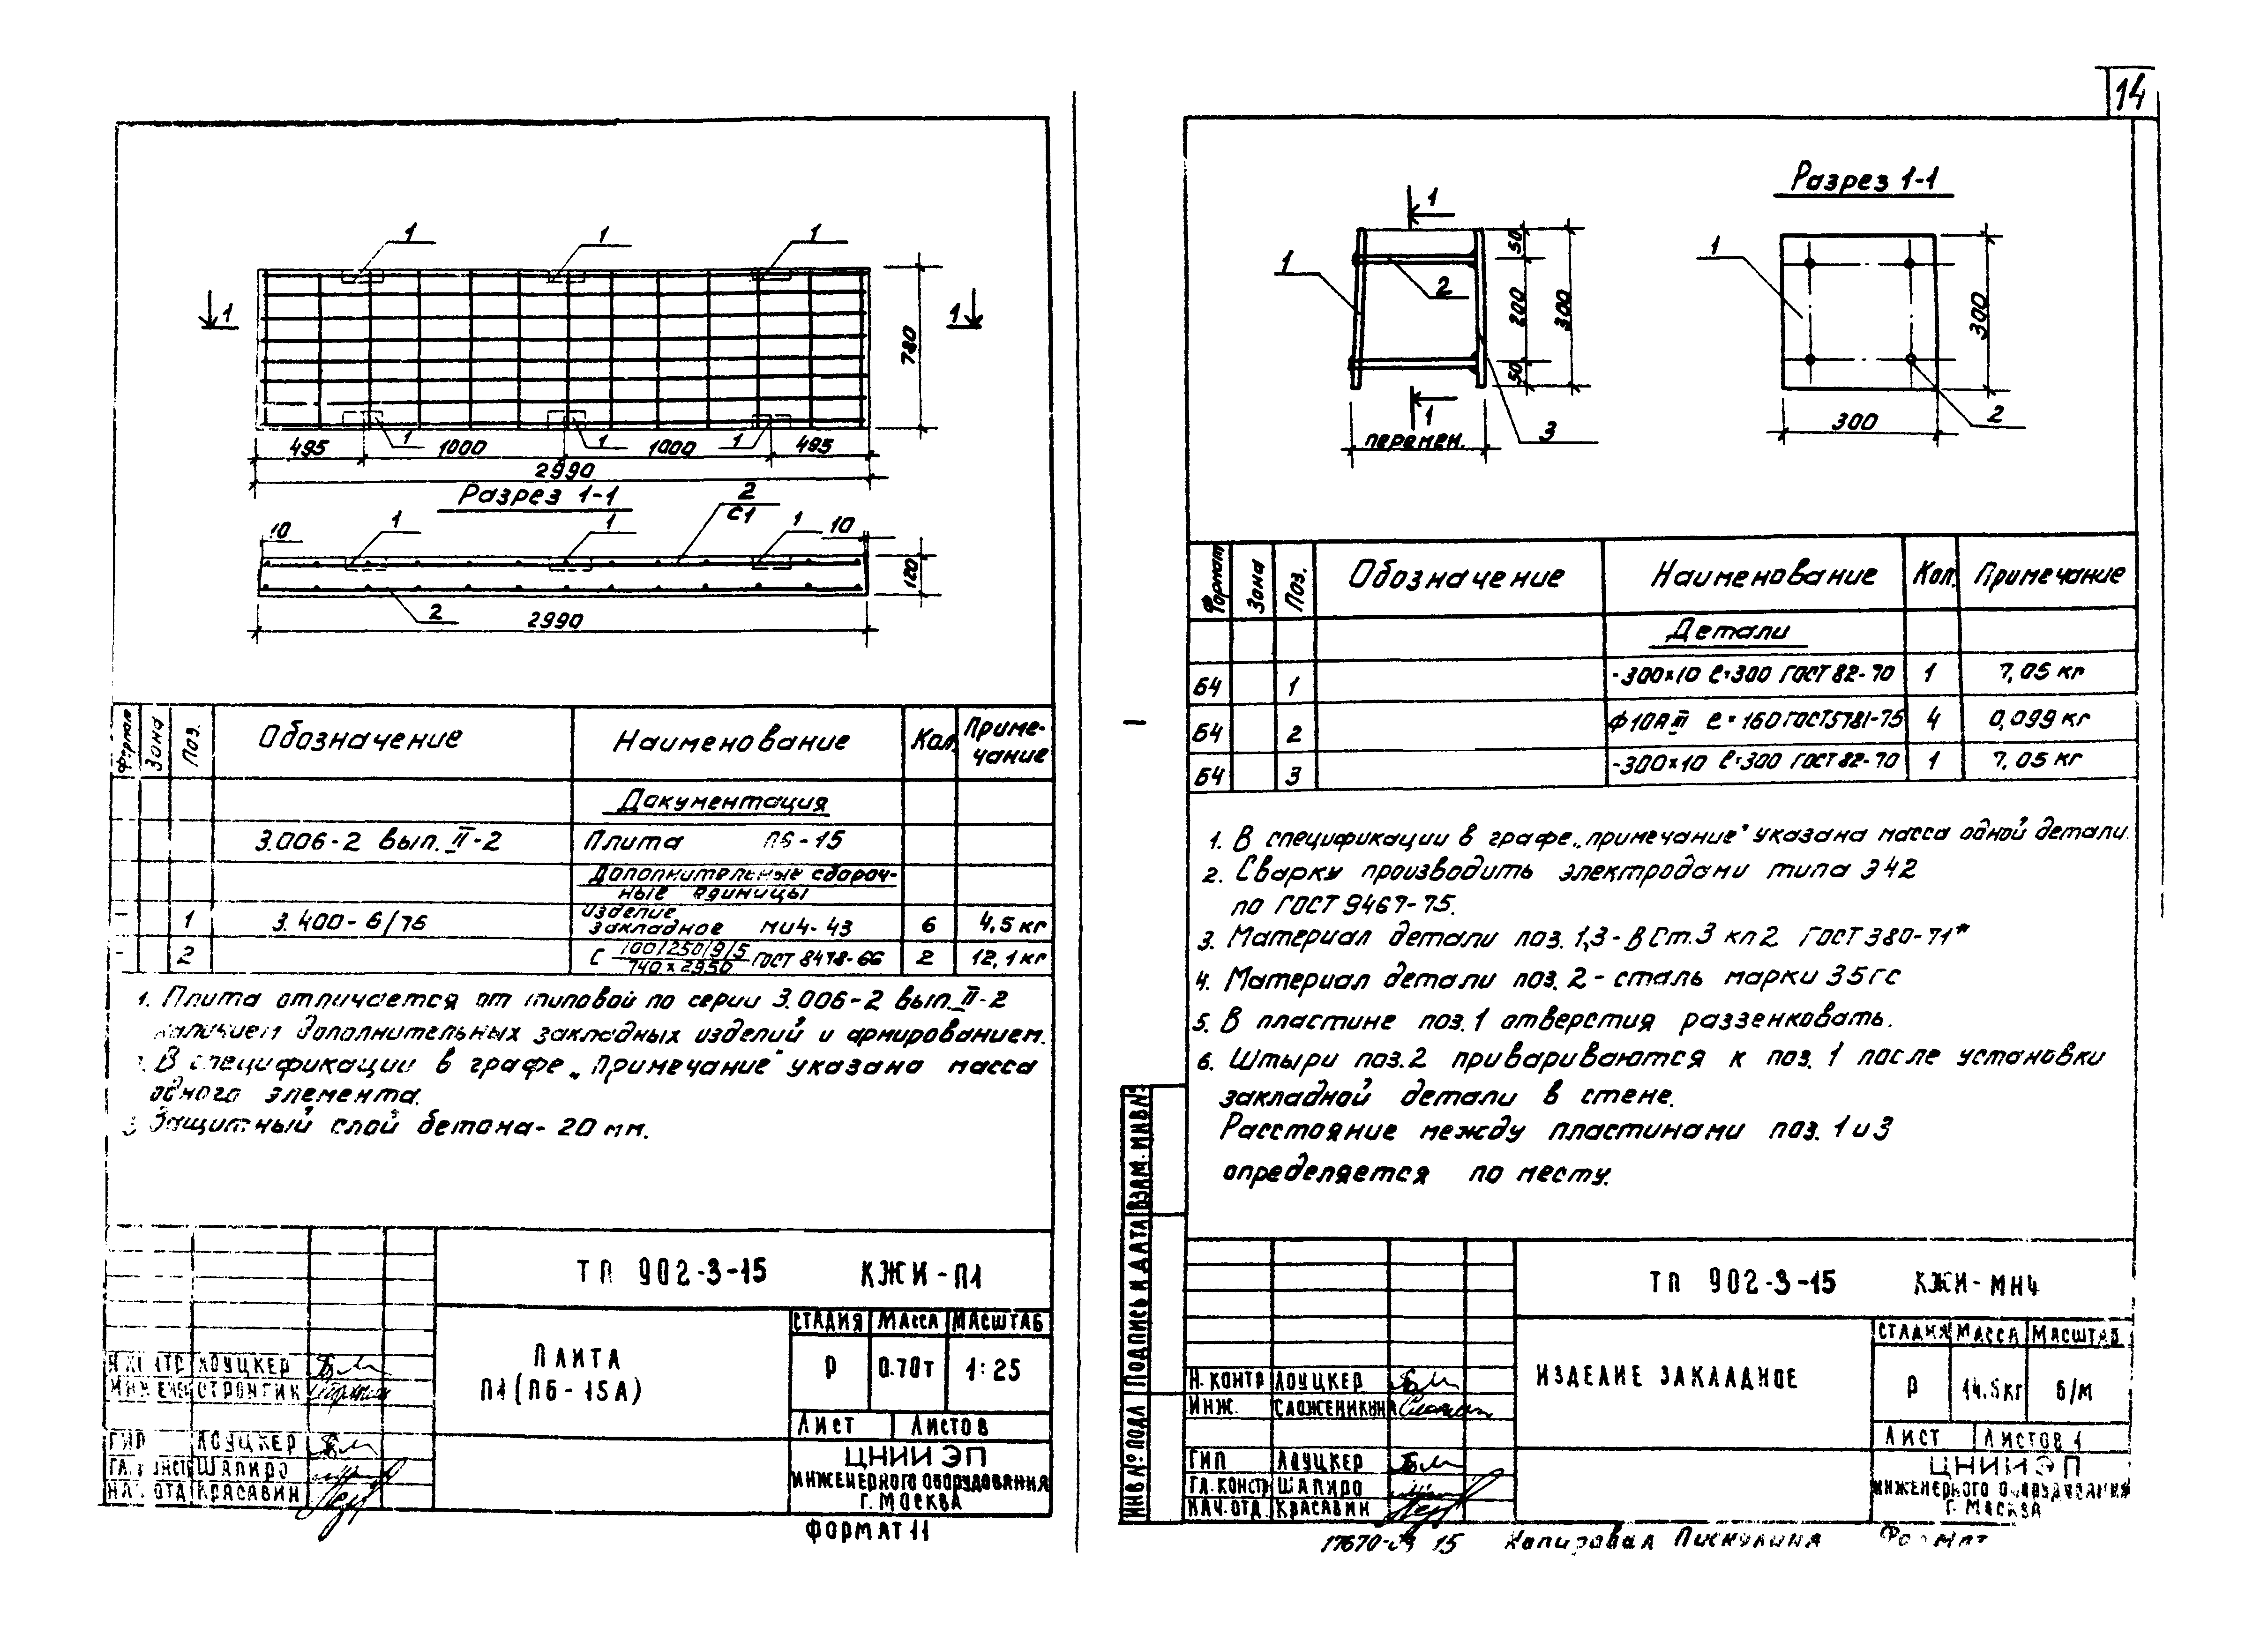 14
1
1
1
1
1
780
1
1
1
495
1000
1000
495
2990
Разрез 1-1
2
С1
10
1
1
1
10
120
2
2990
Формат
Зона
Поз.
Обозначение
Наименование
Кол.
Приме-
чание
Документация
3.006-2 вып. II-2
Плита П6-15
Дополнительные сбороч-
ные единицы
1
3.400-6/76
Изделие
закладное МИ4-43
6
4,5 кг
2
С 100/250/9/5
740×2950
ГОСТ 8478-66
2
12,1 кг
1. Плита отличается от типовой по серии 3.006-2 вып. II-2
наличием дополнительных закладных изделий и армированием.
2. В спецификации в графе „примечание" указана масса
одного элемента.
3 Защитный слой бетона - 20 мм.
ТП 902-3-15 КЖИ-П1
ПЛИТА
П1 (П6-15А)
СТАДИЯ МАССА МАСШТАБ
Р 0.70т 1:25
ЛИСТ ЛИСТОВ
ЦНИИЭП
ИНЖЕНЕРНОГО ОБОРУДОВАНИЯ
Г. МОСКВА
Н.КОНТР ЛОУЦКЕР
ГИП ЛОУЦКЕР
ГЛ.КОНСТР ШАПИРО
НАЧ.ОТД КРАСАВИН
ФОРМАТ 11
1
1
2
50
200
50
300
1
перемен.
3
Разрез 1-1
1
300
300
2
Формат
Зона
Поз.
Обозначение
Наименование
Кол.
Примечание
Детали
Б4 1 -300×10 ℓ=300 ГОСТ 82-70 1 7,05 кг
Б4 2 ф10АIII ℓ=160 ГОСТ5781-75 4 0,099 кг
Б4 3 -300×10 ℓ=300 ГОСТ 82-70 1 7,05 кг
1. В спецификации в графе „примечание" указана масса одной детали.
2. Сварку производить электродами типа Э42
по ГОСТ 9467-75.
3. Материал детали поз. 1,3 - ВСт.3 кп2 ГОСТ 380-71*
4. Материал детали поз. 2 - сталь марки 35гс
5. В пластине поз. 1 отверстия раззенковать.
6. Штыри поз.2 привариваются к поз. 1 после установки
закладной детали в стене.
Расстояние между пластинами поз. 1 и 3
определяется по месту.
ИНВ№ПОДЛ ПОДПИСЬ И ДАТА ВЗАМ.ИНВ№
ТП 902-3-15 КЖИ-МН4
ИЗДЕЛИЕ ЗАКЛАДНОЕ
СТАДИЯ МАССА МАСШТАБ
Р 14.5кг б/м
ЛИСТ ЛИСТОВ 1
ЦНИИЭП
ИНЖЕНЕРНОГО ОБОРУДОВАНИЯ
Г. МОСКВА
Н.КОНТР ЛОУЦКЕР
ИНЖ. СЛОЖЕНИКИНА
ГИП ЛОУЦКЕР
ГЛ.КОНСТР ШАПИРО
НАЧ.ОТД. КРАСАВИН
17670-03 15 Копировал Формат